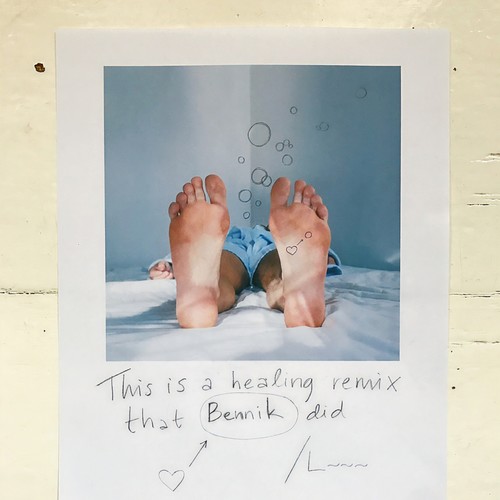 This is a healing remix
that Bennik did
/L~~~